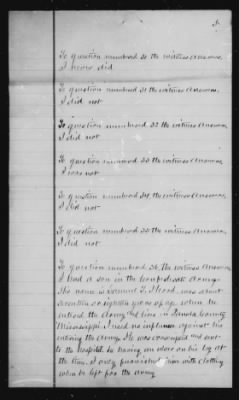 To question numbered 30 the witness answers,
I never did
To question numbered 31 the witness answers,
I did not
To question numbered 32 the witness answers,
I did not
To question numbered 33 the witness answers,
I was not
To question numbered 34, the witness answers,
I did not
To question numbered 35 the witness answers,
I did not
To question numbered 36, the witness answers,
I had a son in the Confederate Army.
His name is Samuel F. Heard was about
seventeen or eighteen years of age when he
entered the Army and lives in Panola County
Mississippi I used no influence against his
entering the Army. He was and sent
to the hospital he having an ulcer on his leg at
the time. I only furnished him with clothing
when he left for the army